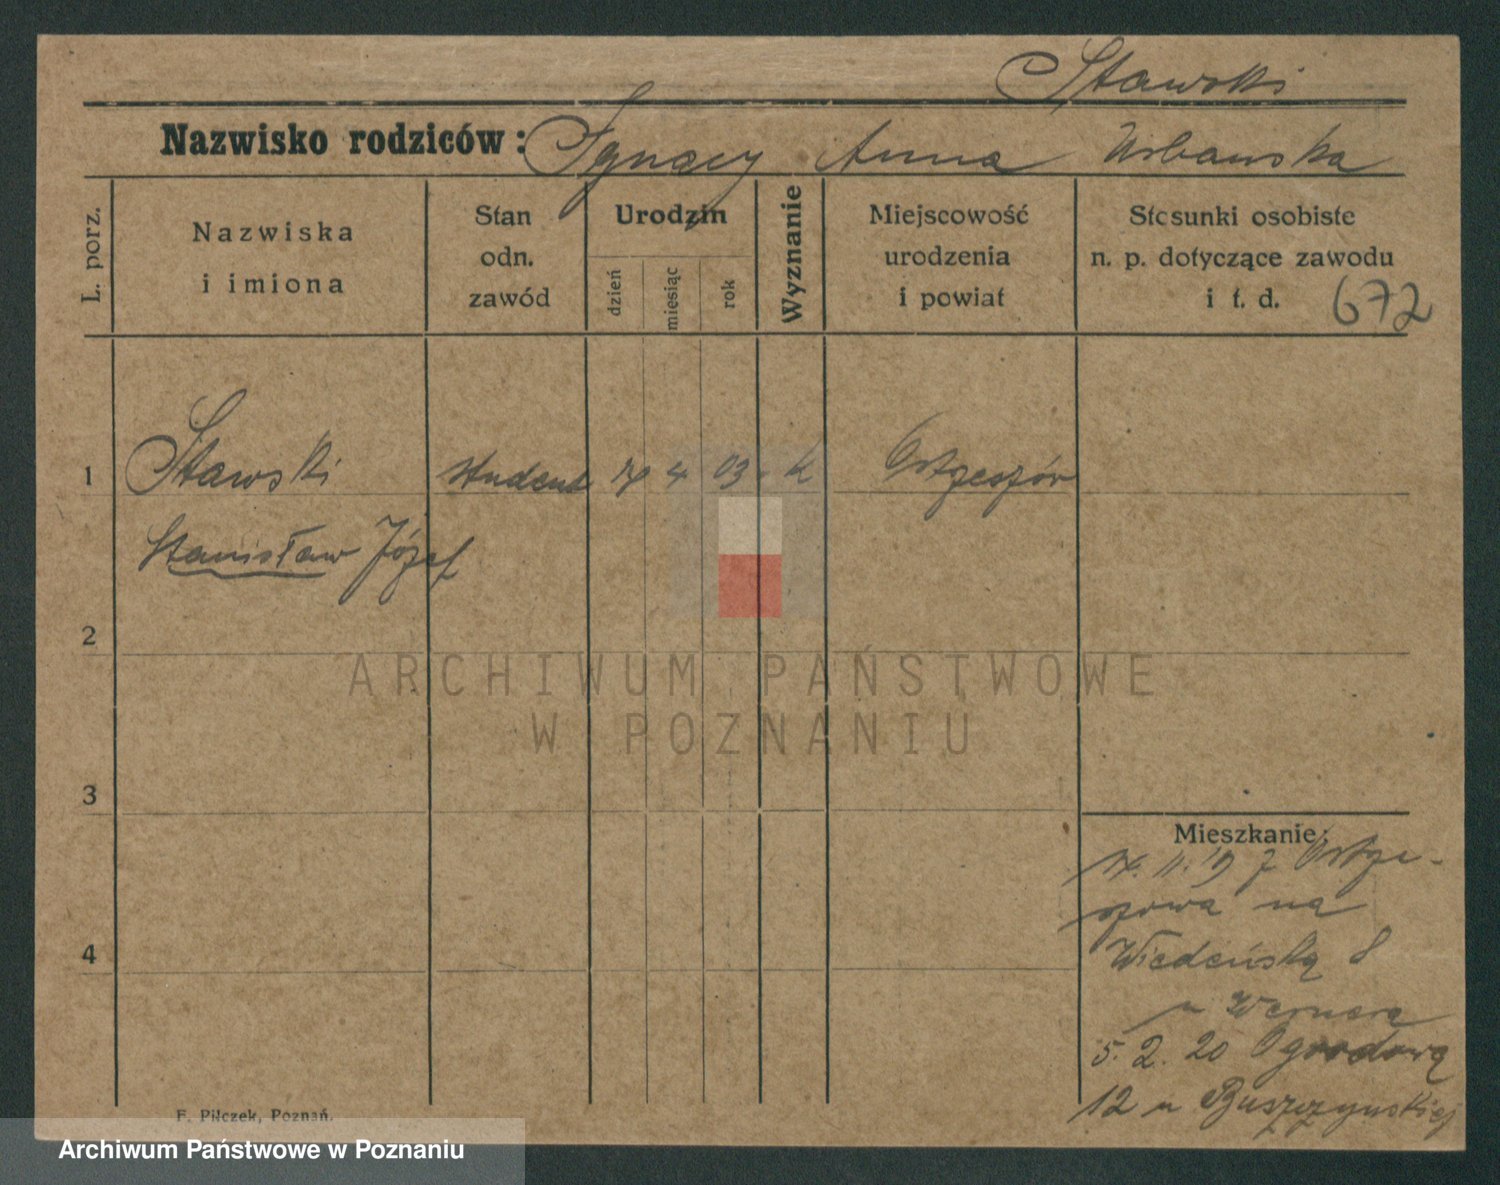 Stawski
Nazwisko rodziców: Ignacy Anna Urbańska
L. porz.
Nazwiska
i imiona
Stan
odn.
zawód
Urodzin
dzień
miesiąc
rok
Wyznanie
Miejscowość
urodzenia
i powiat
Stosunki osobiste
n. p. dotyczące zawodu
i t. d.
672
1
Stawski student 4 03 k Ostrzeszów
Stanisław Józef
2
3
4
Mieszkanie:
11. 19 z Ostrze-
szowa na
Wiedeńską 8
u Wernera
5. 2. 20 Ogrodową
12 u Buszczyńskiej
F. Pilczek, Poznań.
ARCHIWUM PAŃSTWOWE
W POZNANIU
Archiwum Państwowe w Poznaniu